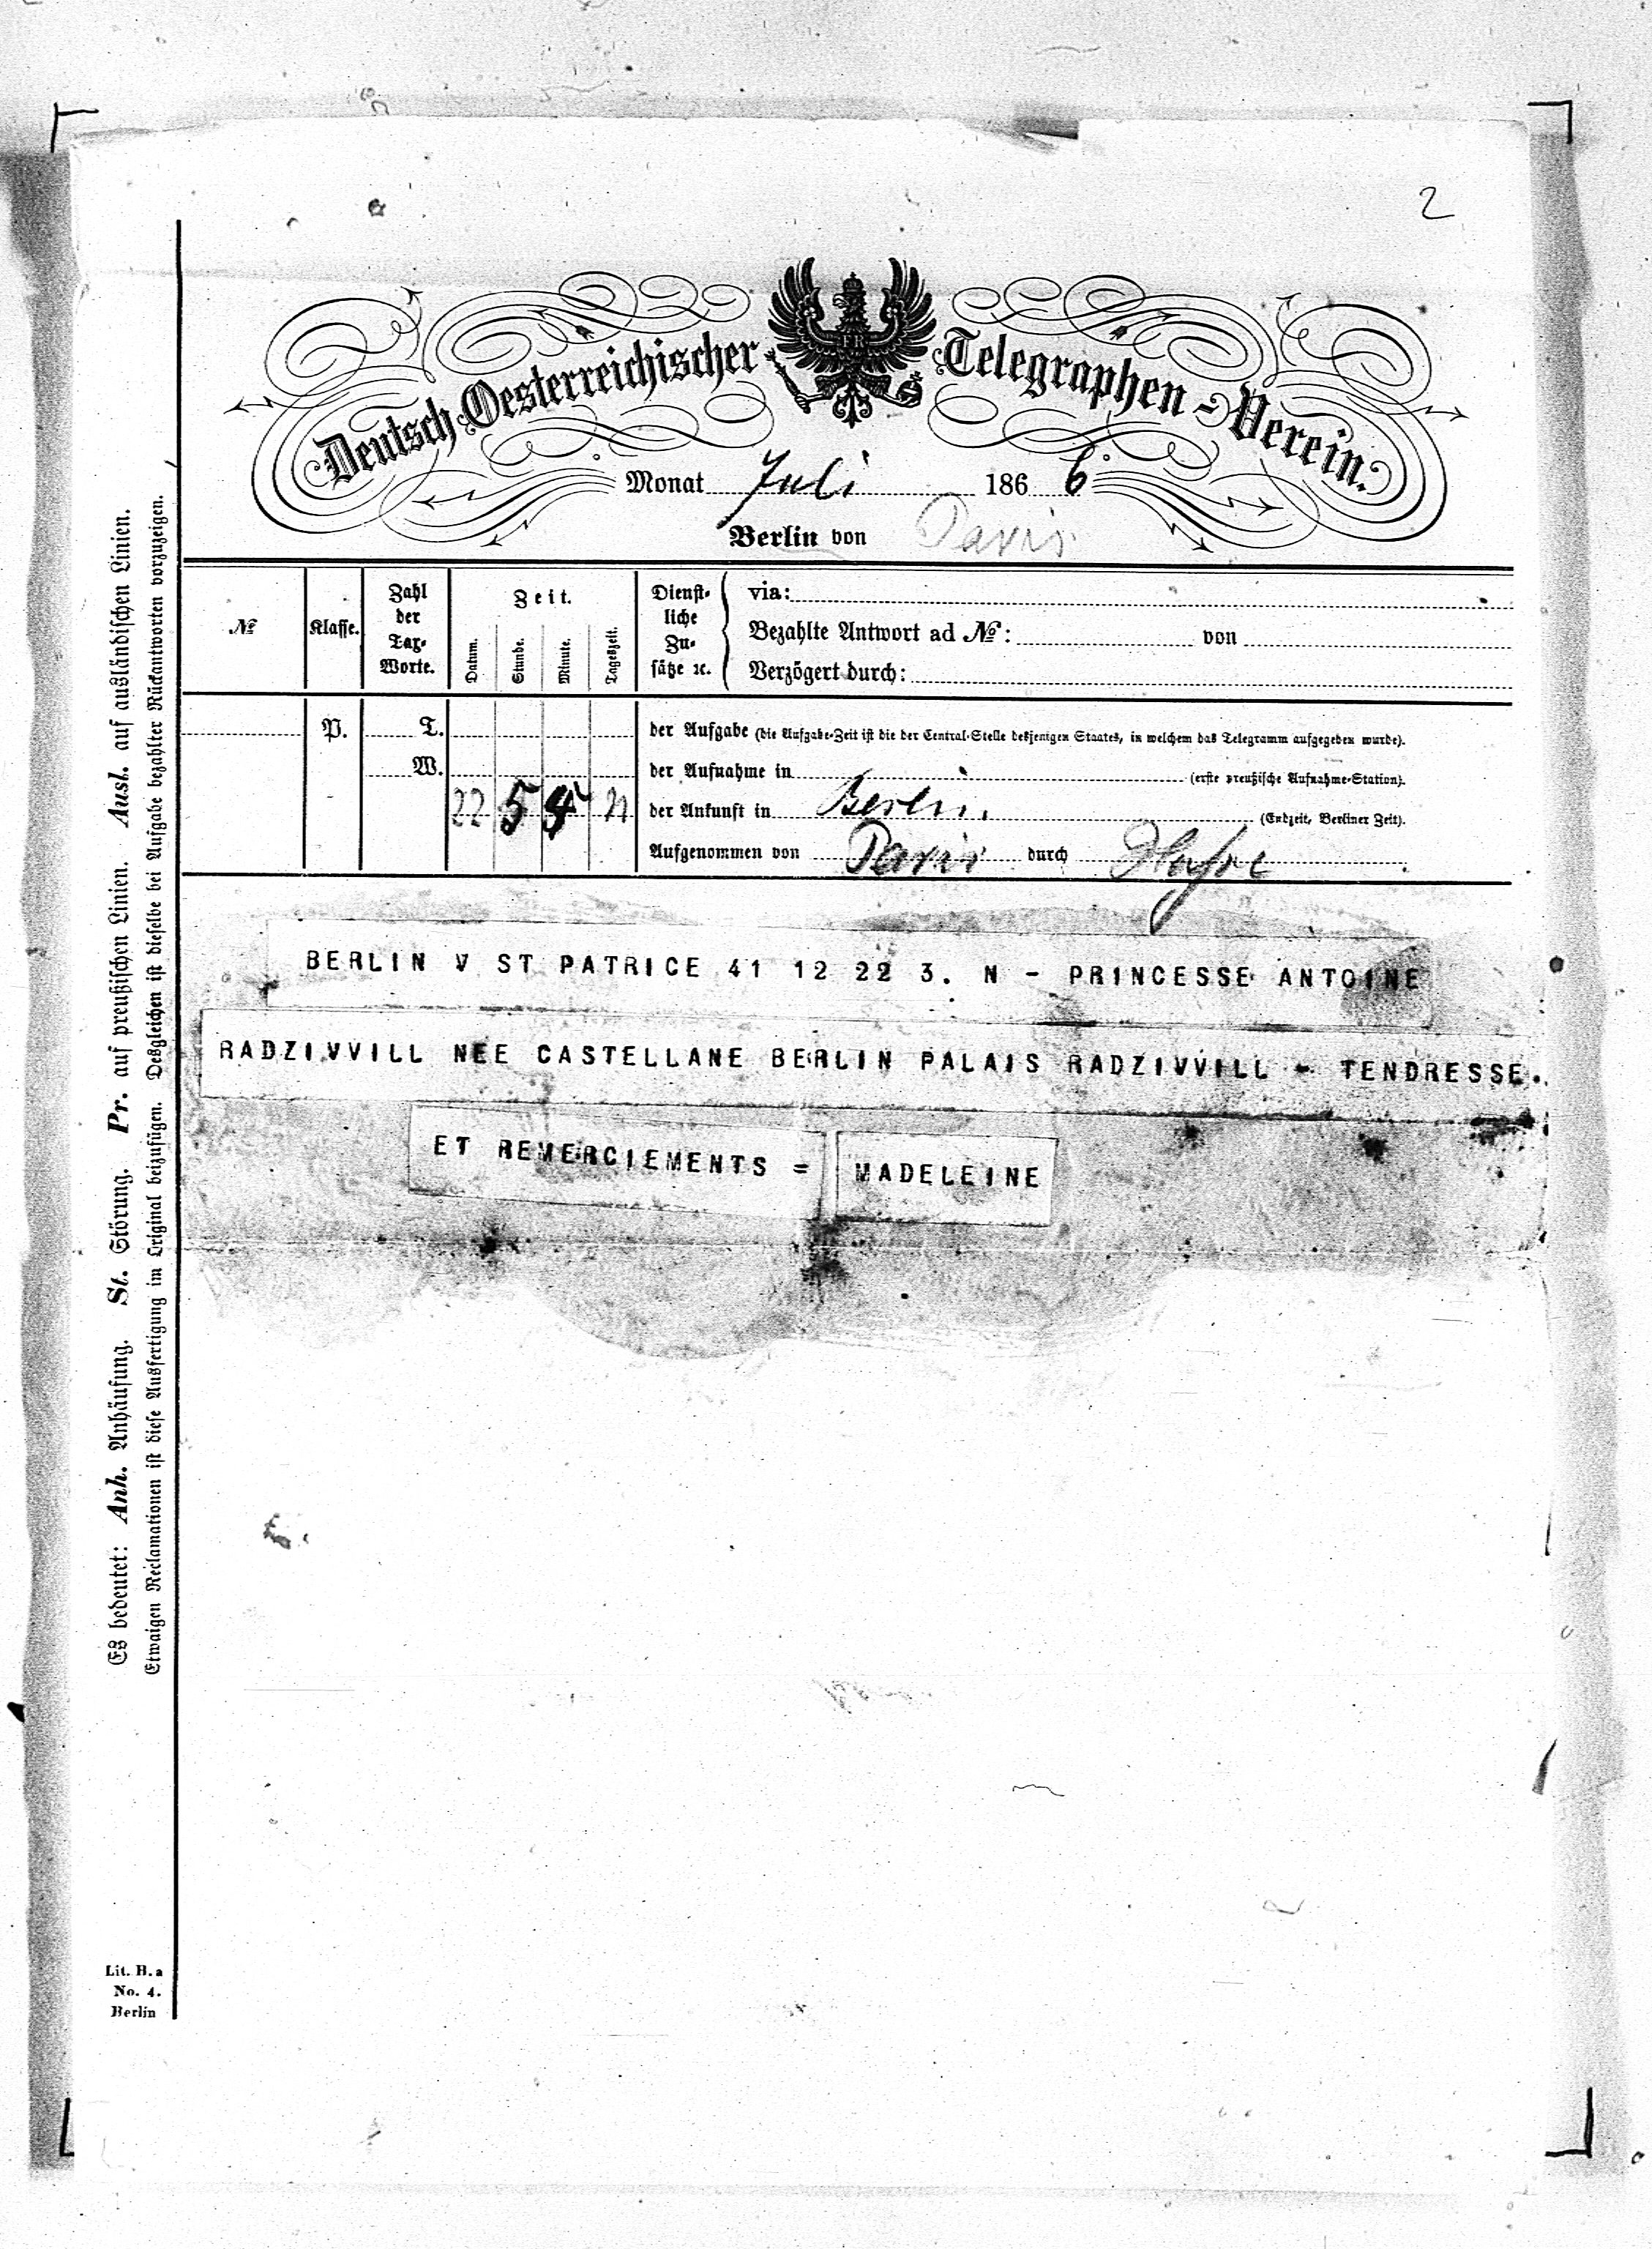 2
Deutsch-Oesterreichischer Telegraphen-Verein.
FR
Monat Juli 1866.
Berlin von Paris.
№
Klasse.
Zahl
der
Tax-
Worte.
Zeit.
Datum.
Stunde.
Minute.
Tageszeit.
Dienst-
liche
Zu-
sätze ꝛc.
via:
Bezahlte Antwort ad №: von
Verzögert durch:
P. T. der Aufgabe (die Aufgabe-Zeit ist die der Central-Stelle desjenigen Staates, in welchem das Telegramm aufgegeben wurde).
W. der Aufnahme in (erste preußische Aufnahme-Station).
22 5 N der Ankunft in Berlin. (Endzeit, Berliner Zeit).
Aufgenommen von Paris durch
BERLIN V ST PATRICE 41 12 22 3. N - PRINCESSE ANTOINE
RADZIVVILL NEE CASTELLANE BERLIN PALAIS RADZIVVILL - TENDRESSE.
ET REMERCIEMENTS = MADELEINE
Es bedeutet: Anh. Anhäufung. St. Störung. Pr. auf preußischen Linien. Ausl. auf ausländischen Linien.
Etwaigen Reclamationen ist diese Ausfertigung im Original beizufügen. Desgleichen ist dieselbe bei Aufgabe bezahlter Rückantworten vorzuzeigen.
Lit. B. a
No. 4.
Berlin